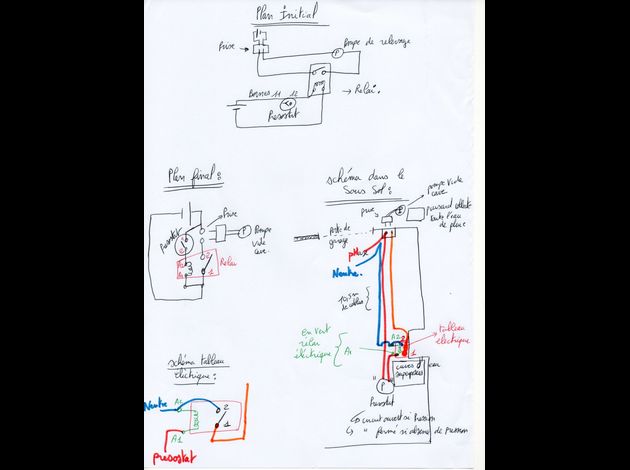 Plan Initial
Prise
Pompe de relevage
Bornes 11 12
Relai.
Pressostat
Plan final:
Prise
pressostat
Pompe
vide
cave.
A2
A1
2
1
Relai
schéma dans le
Sous Sol:
pompe vide
cave
prise
puisard
toute l'eau
de pluie
Porte de
garage
phase
Neutre.
10,5m
de câbles
en vert
relai
électrique
A2
A1
2
1
tableau
électrique
cuves
eau
P
Pressostat
circuit ouvert si pression
" fermé si absence de pression
schéma tableau
électrique:
Neutre
A2
2
1
A1
pressostat